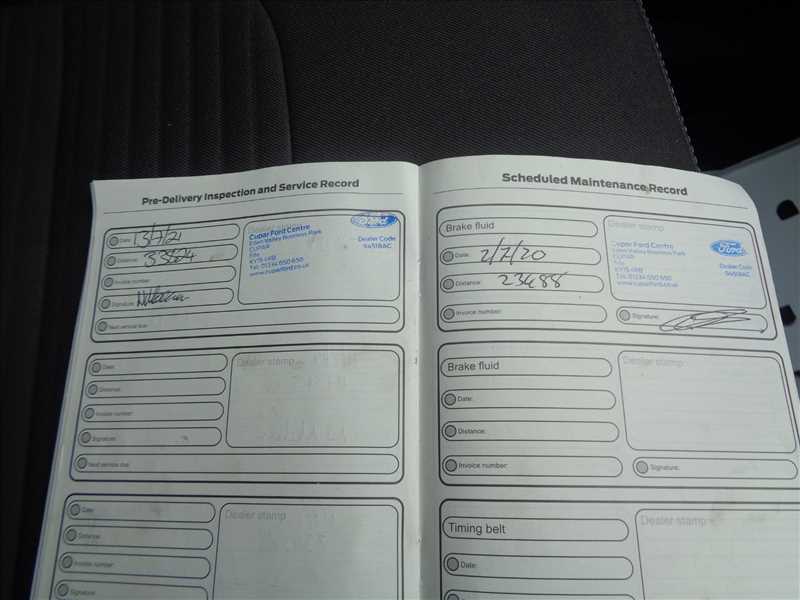 Pre-Delivery Inspection and Service Record
Date: 13/7/21
Distance: 33584
Invoice number:
Signature:
Next service due:
Cupar Ford Centre
Eden Valley Business Park
CUPAR
Fife
KY15 4RB
Tel: 01334 650 650
www.cuparford.co.uk
Ford
Dealer Code
94518AC
Date:
Distance:
Invoice number:
Signature:
Next service due:
Dealer stamp
Date:
Distance:
Invoice number:
Signature:
Dealer stamp
Scheduled Maintenance Record
Brake fluid
Date: 2/7/20
Distance: 23488
Invoice number:
Dealer stamp
Cupar Ford Centre
Eden Valley Business Park
CUPAR
Fife
KY15 4RB
Tel: 01334 650 650
www.cuparford.co.uk
Ford
Dealer Code
94518AC
Signature:
Brake fluid
Date:
Distance:
Invoice number:
Dealer stamp
Signature:
Timing belt
Date:
Dealer stamp